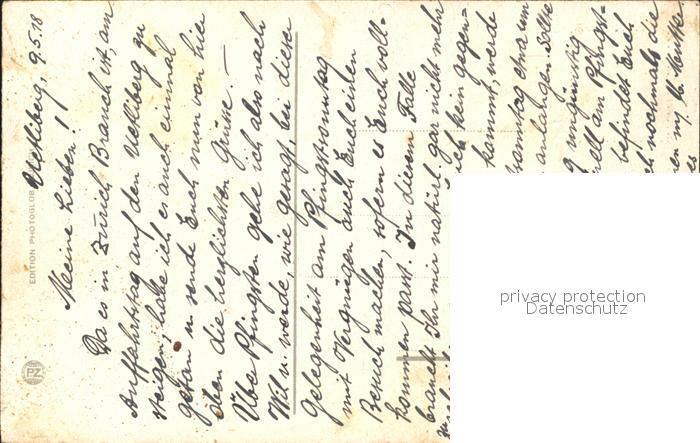 Uetliberg, 9.5.18
Meine Lieben!
Da es in Zürich Brauch ist, am
Auffahrtstag auf den Uetliberg zu
steigen, habe ich es auch einmal
getan u. sende Euch nun von hier
oben die herzlichsten Grüsse. –
Über Pfingsten gehe ich also nach
Wil u. werde, wie gesagt, bei dieser
Gelegenheit am Pfingstsonntag
mit Vergnügen auch Euch einen
Besuch machen, sofern es Euch voll-
kommen passt. In diesem Falle
braucht Ihr mir natürl. gar nicht mehr
kein gegen-
kommt, werde
etwa um
anlangen. Sollte
ungünstig
am Pfingst-
befindet Euch
nochmals die
EDITION PHOTOGLOB
PZ
privacy protection
Datenschutz